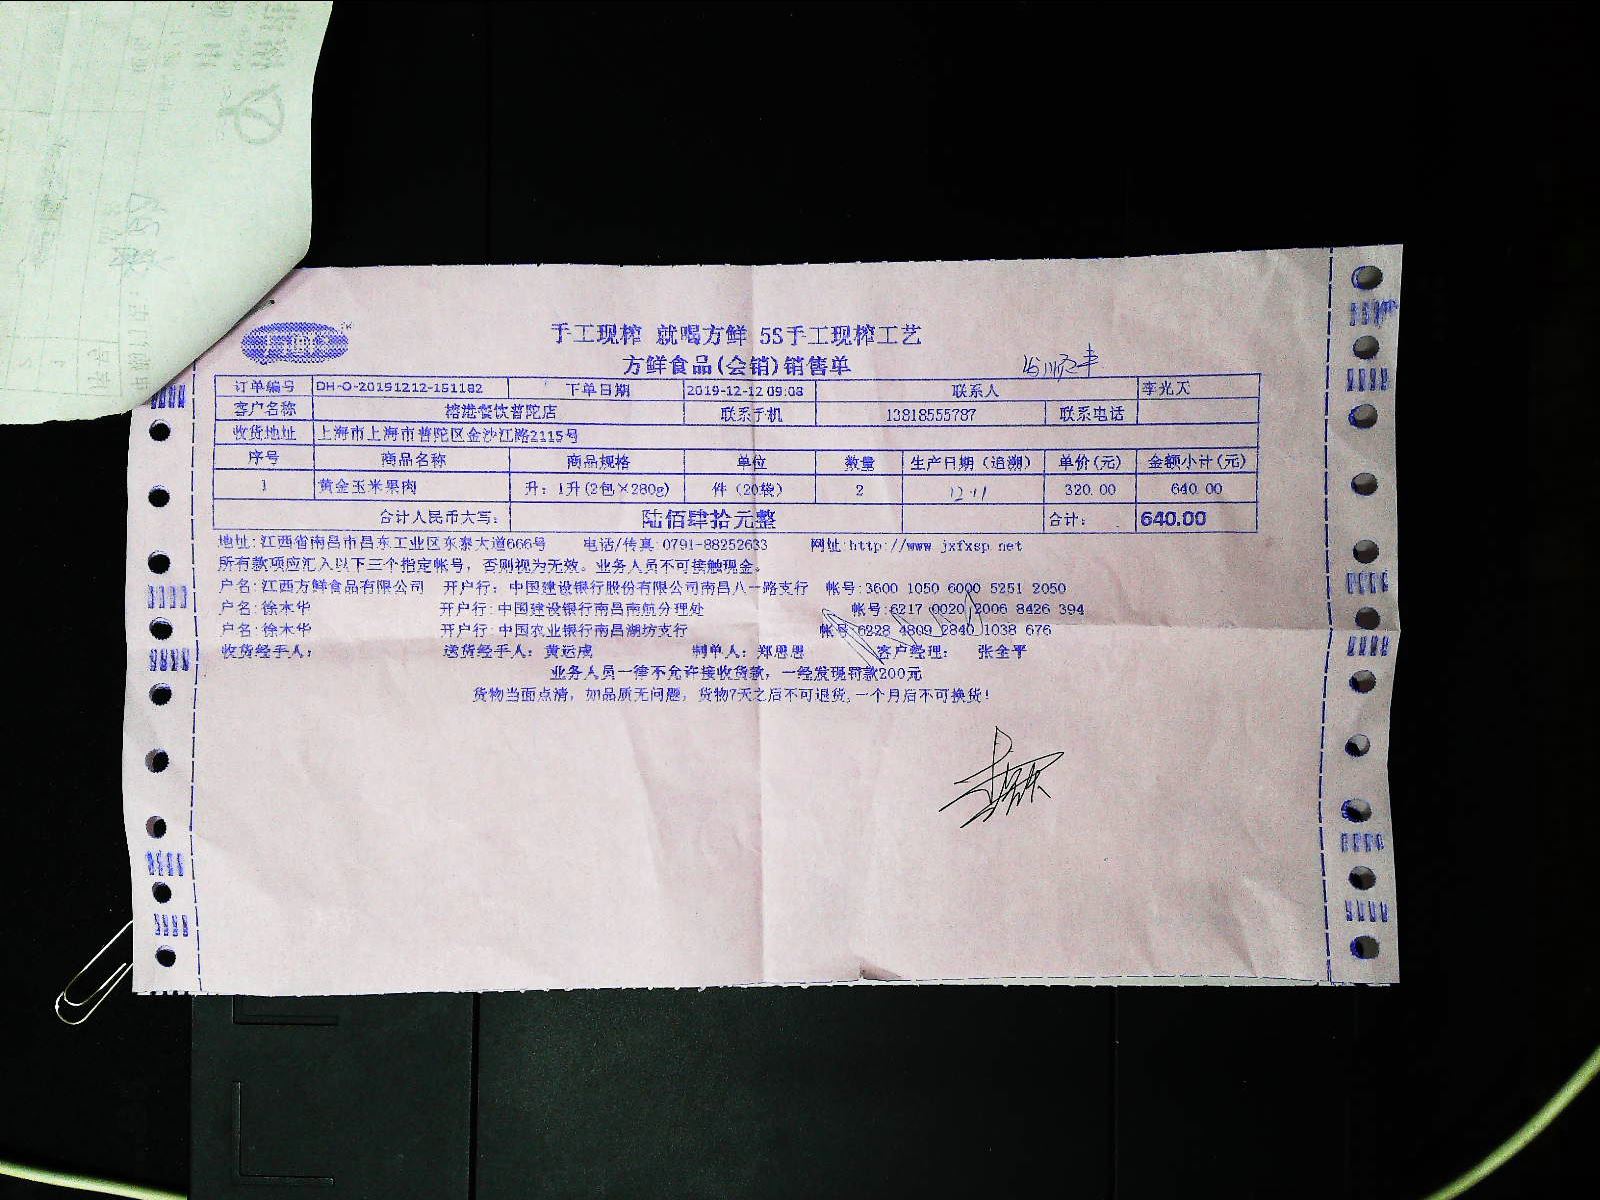 手工现榨 就喝方鲜 5S手工现榨工艺
方鲜食品(会销)销售单
发顺丰
订单编号 DH-O-20191212-151182 下单日期 2019-12-12 09:08 联系人 李光天
客户名称 榕港餐饮普陀店 联系手机 13818555787 联系电话
收货地址 上海市上海市普陀区金沙江路2115号
序号 商品名称 商品规格 单位 数量 生产日期（追溯） 单价(元) 金额小计(元)
1 黄金玉米果肉 升：1升(2包×280g) 件（20袋） 2 12.11 320.00 640.00
合计人民币大写： 陆佰肆拾元整 合计： 640.00
地址:江西省南昌市昌东工业区东泰大道666号 电话/传真:0791-88252633 网址:http://www.jxfxsp.net
所有款项应汇入以下三个指定帐号，否则视为无效。业务人员不可接触现金。
户名:江西方鲜食品有限公司 开户行：中国建设银行股份有限公司南昌八一路支行 帐号:3600 1050 6000 5251 2050
户名:徐木华 开户行:中国建设银行南昌南航分理处 帐号:6217 0020 2006 8426 394
户名:徐木华 开户行:中国农业银行南昌湖坊支行 帐号:6228 4809 2840 1038 676
收货经手人： 送货经手人：黄运虎 制单人：郑恩恩 客户经理： 张全平
业务人员一律不允许接收货款，一经发现罚款200元
货物当面点清，如品质无问题，货物7天之后不可退货,一个月后不可换货!